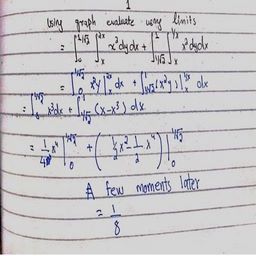 1
Using graph evaluate using limits
= ∫₀^{1/√2} ∫ₓ^{2x} x² dy dx + ∫_{1/√2}^{1} ∫ₓ^{1/x} x² dy dx
= ∫₀^{1/√2} x²y |ₓ^{2x} dx + ∫_{1/√2}^{1} (x²y) |ₓ^{1/x} dx
= ∫₀^{1/√2} x³ dx + ∫_{1/√2}^{1} (x - x³) dx
= 1/4 x⁴ |₀^{1/√2} + (1/2 x² - 1/2 x⁴) |₀^{1/√2}
A few moments later
= 1/8